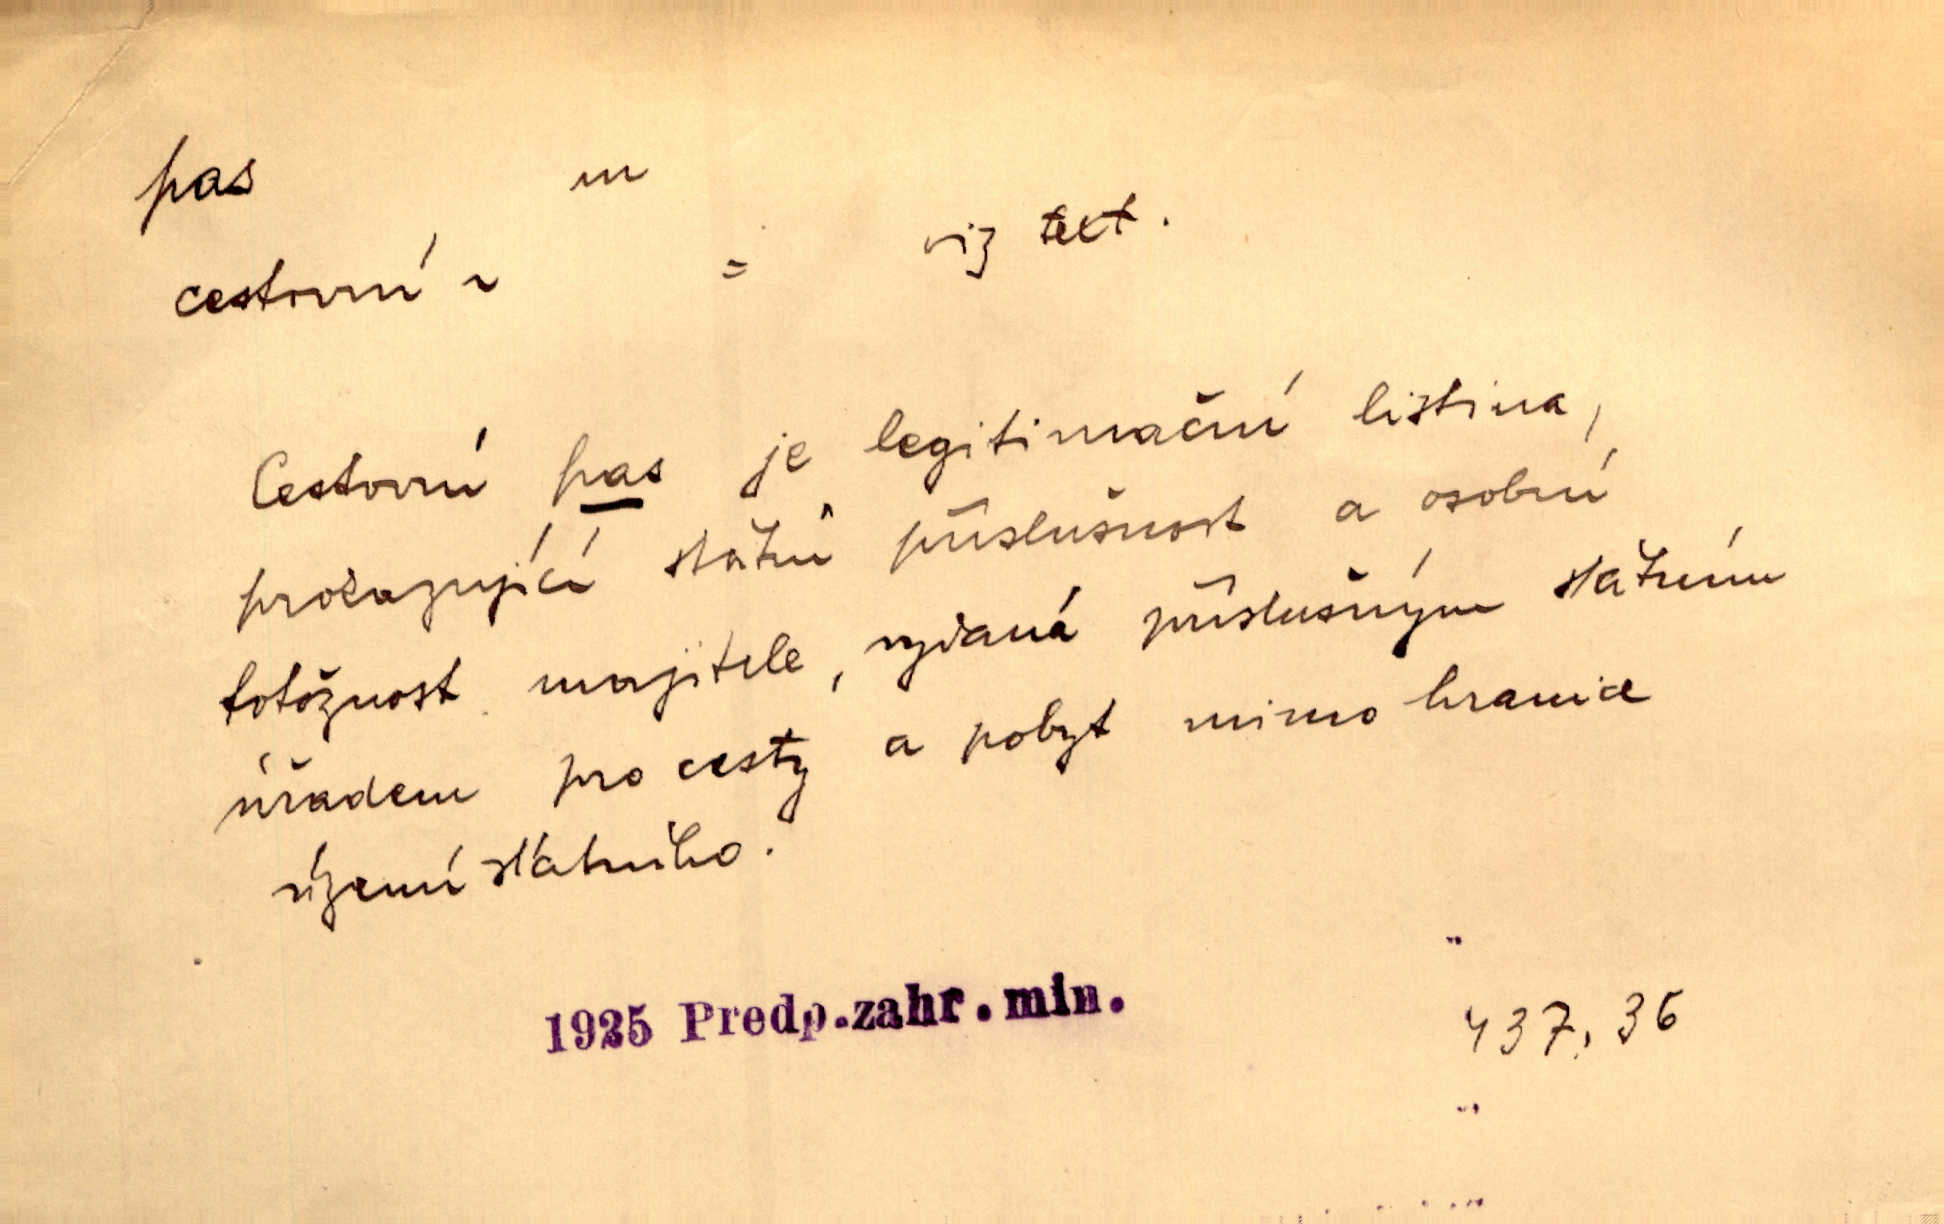 pas m
cestovní ~ = viz text.
Cestovní pas je legitimační listina,
prokazující státní příslušnost a osobní
totožnost majitele, vydaná příslušným státním
úřadem pro cesty a pobyt mimo hranice
území státního.
1925 Predp.zahr.min.
437, 36